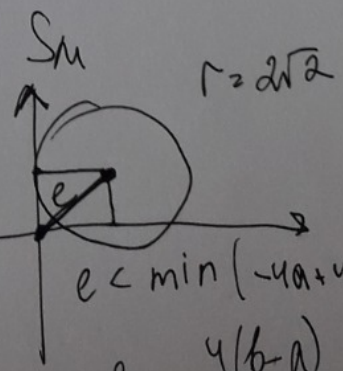 Sm
r = 2√2
e
e < min (-4a+
4(b-a)